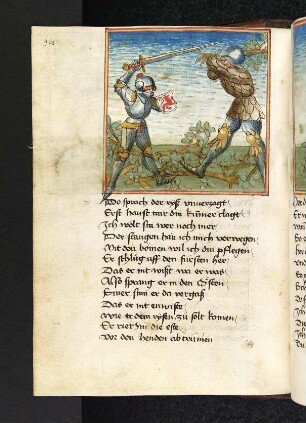 Do sprach der ryß vnuerzagt
Erst haust mir din kumer clagt
Ich wolt sin wer noch mer
Der stangen han ich mich verwegen
Mit den bomen wil ich din pflegen
Er schlug vff den fursten her
Das er nit wißt wa er was
Also sprang er in den Esten
Einer sinn er da vergaß
Das er nit enwiste
Wie er dem rysen zu solt komen
Er rier im die este
Vor den henden ab